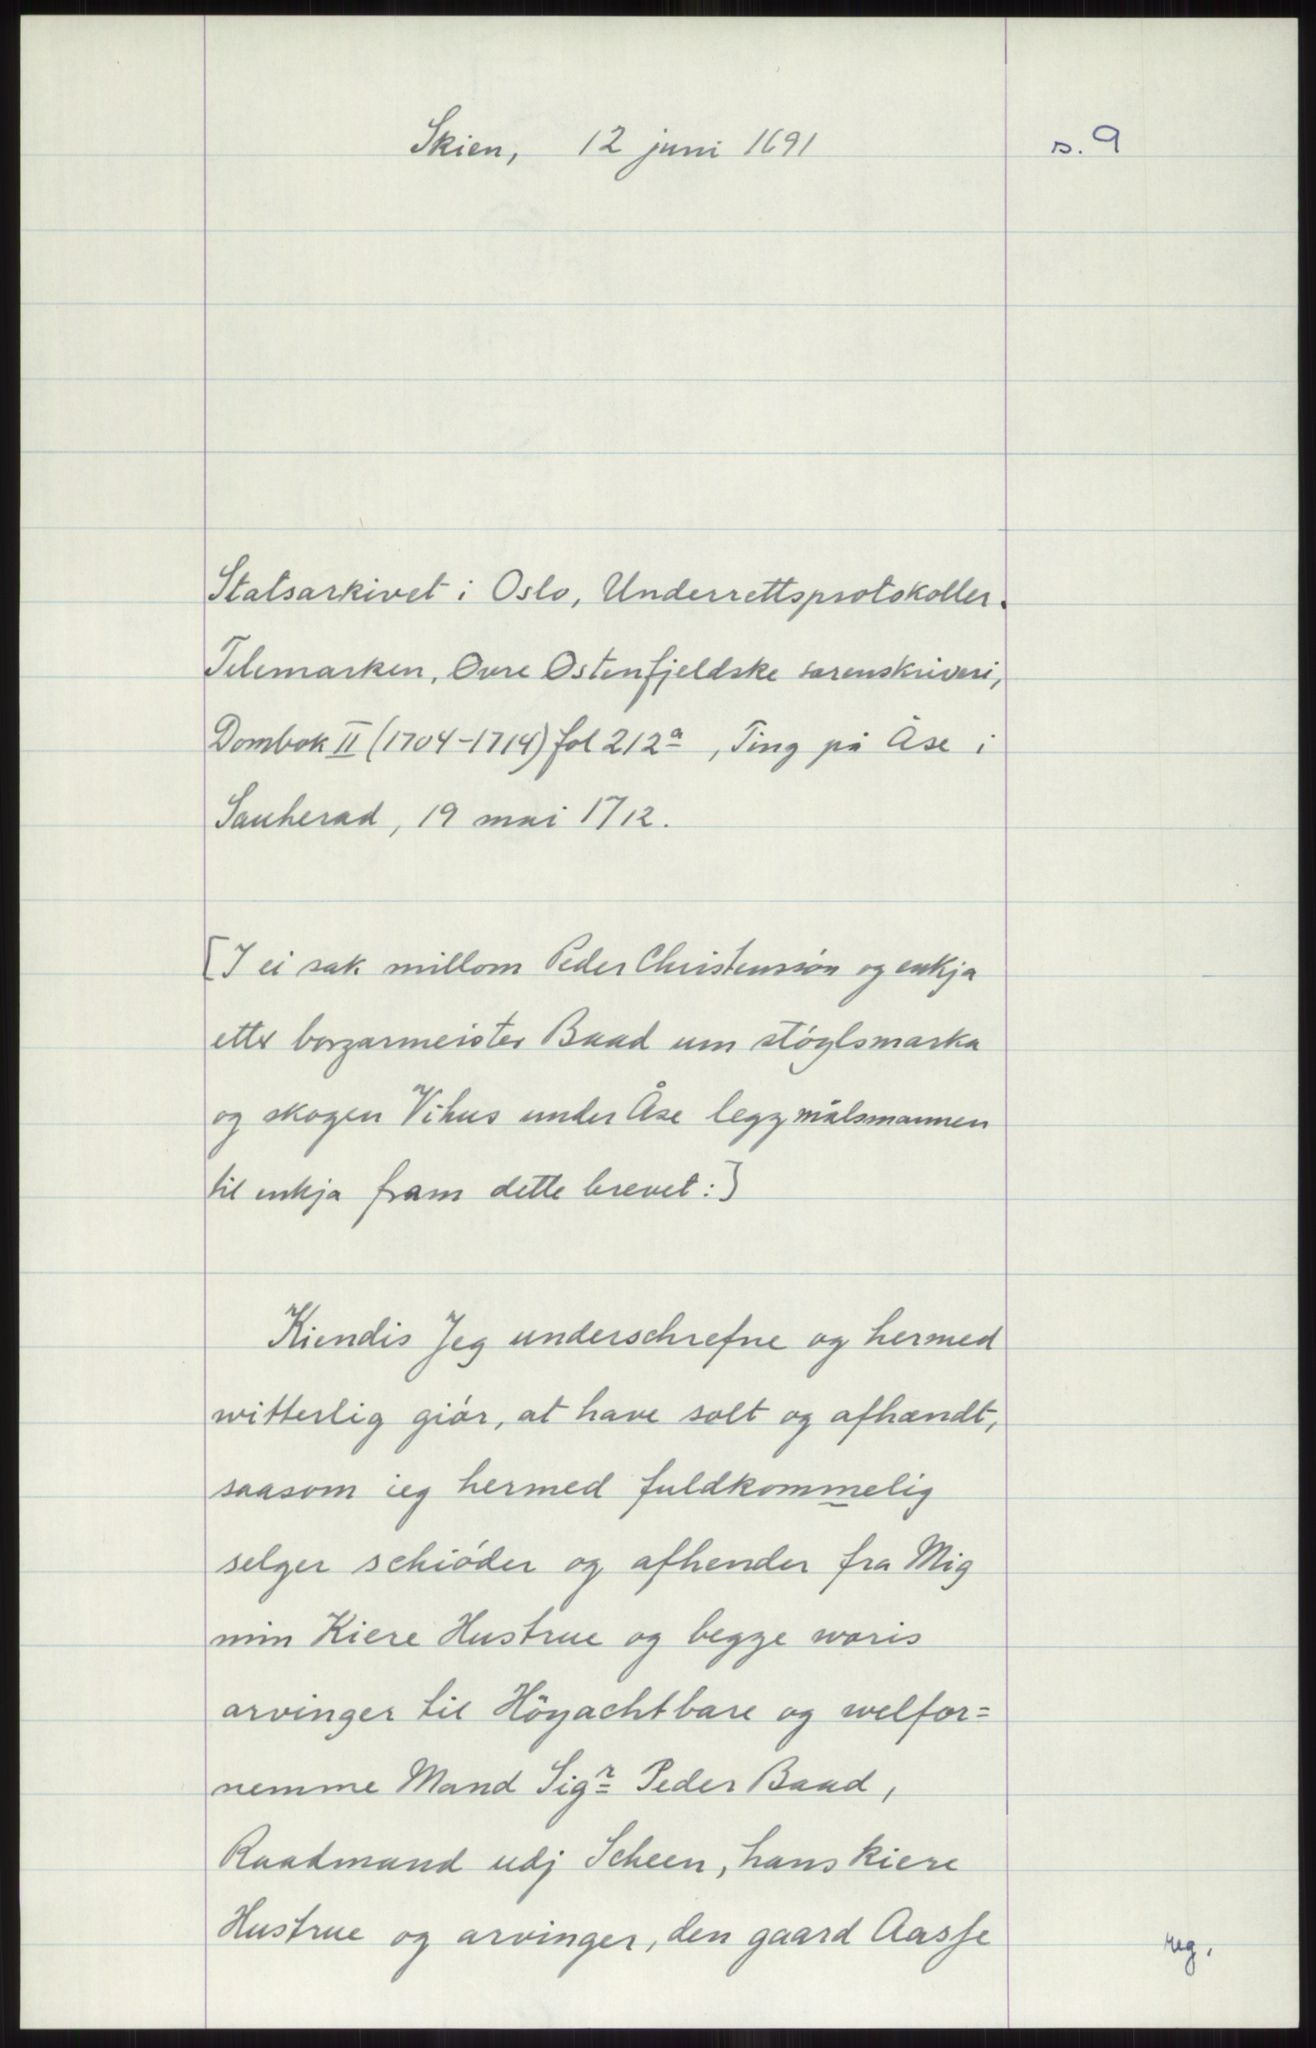 Skien, 12 juni 1691
s. 9
Statsarkivet i Oslo, Underrettsprotokoller.
Telemarken, Øvre Østenfjeldske sorenskriveri,
Dombok II (1704-1714) fol 212a, Ting på Åse i
Sauherad, 19 mai 1712.
[I ei sak millom Peder Christenssön og enkja
etter borgarmeister Baad um stöylsmarka
og skogen Vihus under Åse legg målsmannen
til enkja fram dette brevet:]
Kiendis Jeg underschrefne og hermed
witterlig giör, at have solt og afhændt,
saasom ieg hermed fuldkommelig
selger schiöder og afhender fra Mig
min Kiere Hustrue og begge woris
arvinger til Höyachtbare og welfor=
nemme Mand Sigr Peder Baad,
Raadmand udj Scheen, hans kiere
Hustrue og arvinger, den gaard Aasse
reg.